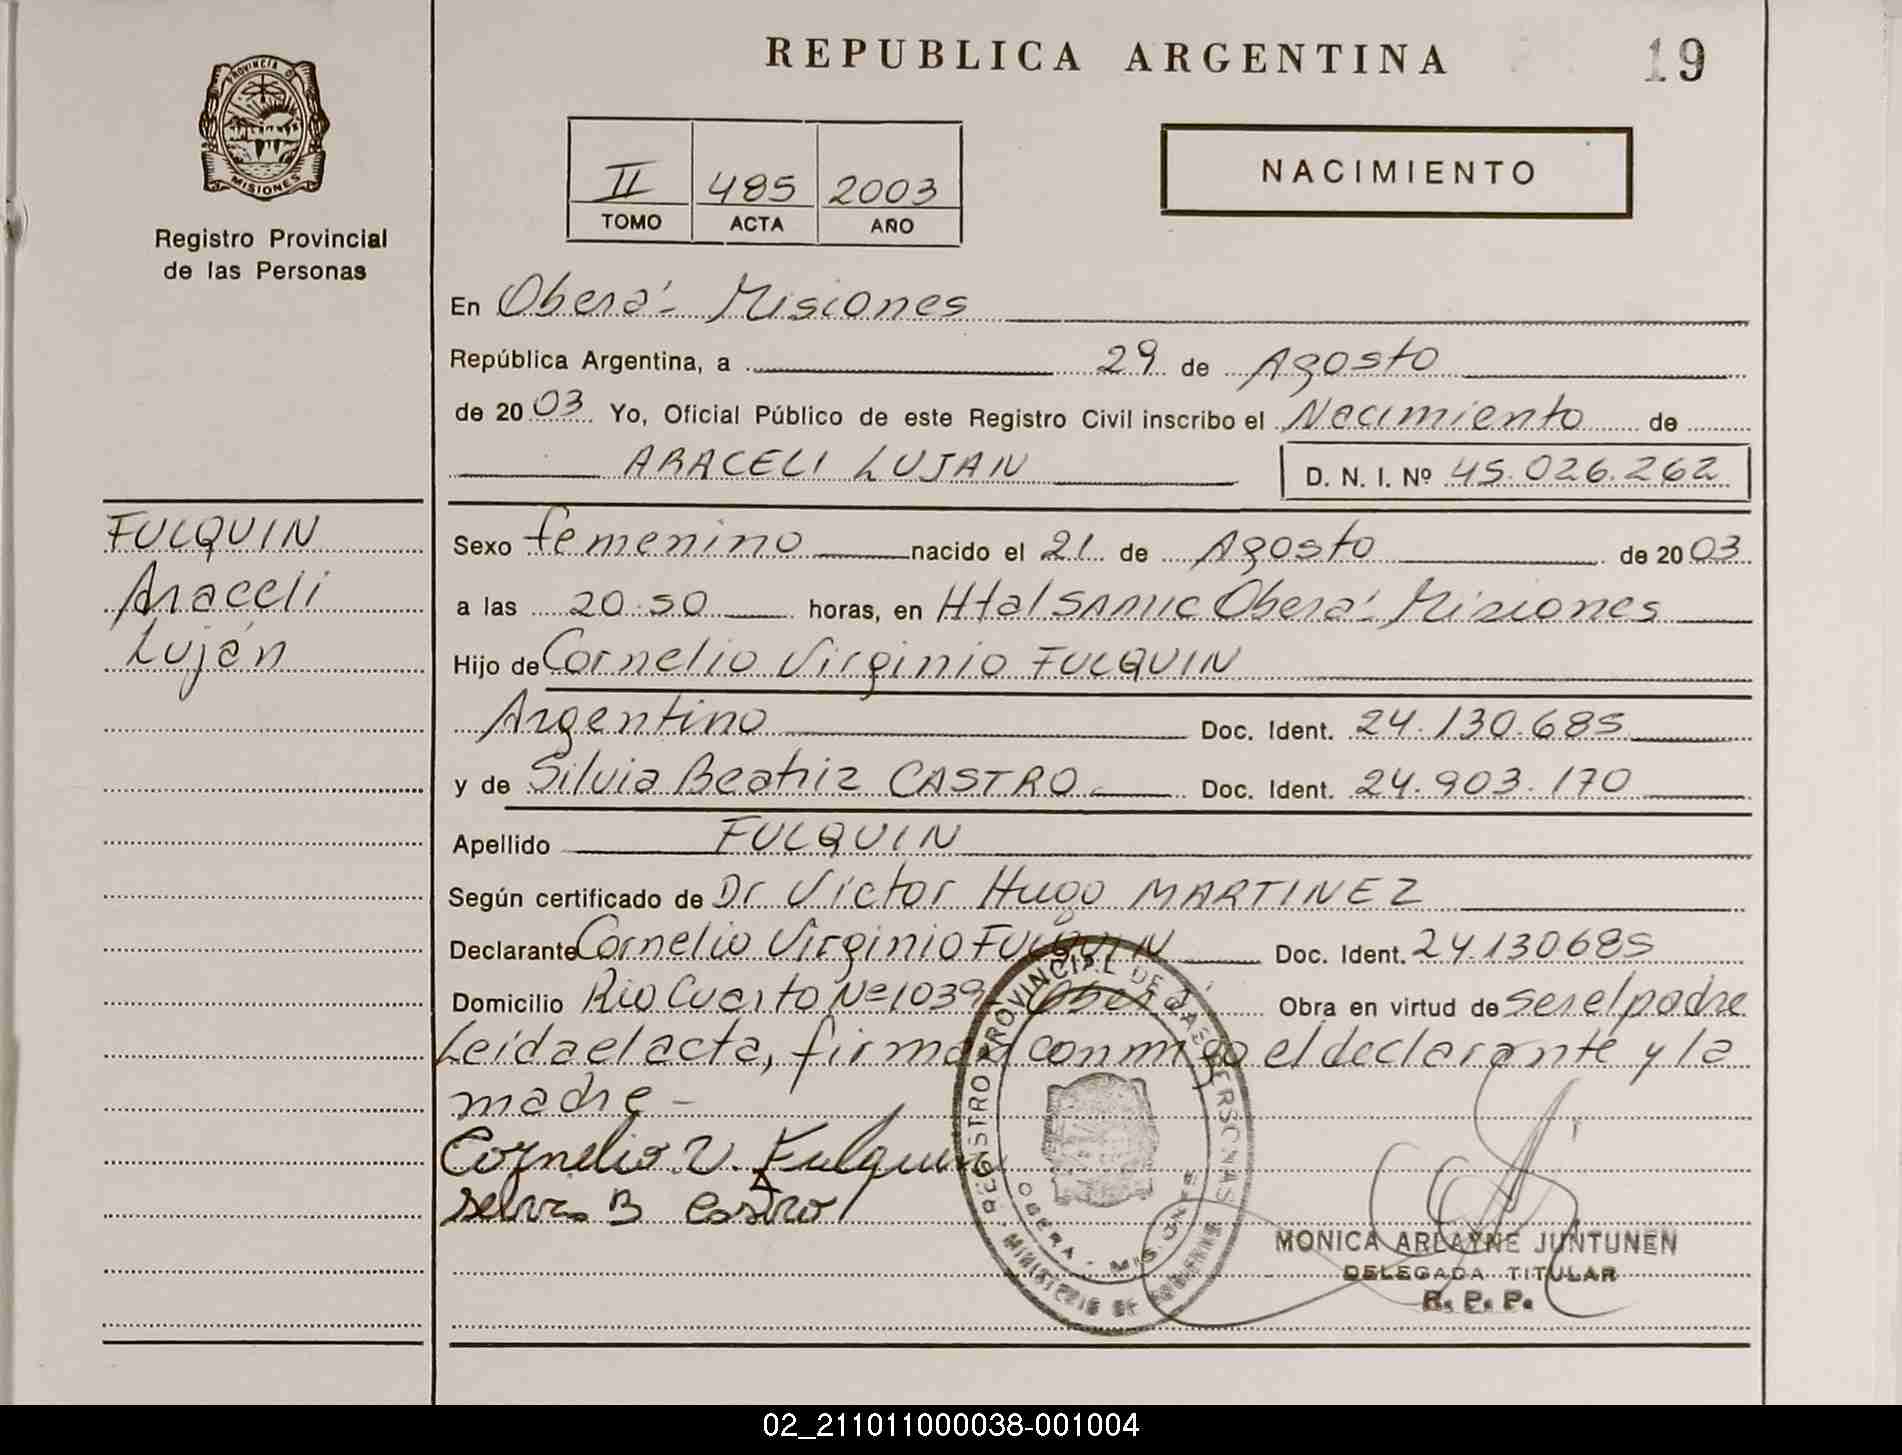 REPUBLICA ARGENTINA
19
PROVINCIA D
MISIONES
Registro Provincial
de las Personas
II 485 2003
TOMO ACTA AÑO
NACIMIENTO
En Oberá - Misiones
República Argentina, a 29 de Agosto
de 2003 Yo, Oficial Público de este Registro Civil inscribo el Nacimiento de
ARACELI LUJAN D. N. I. Nº 45.026.262
FULQUIN
Araceli
Luján
Sexo femenino nacido el 21 de Agosto de 2003
a las 20.50 horas, en Htal SAMIC Oberá - Misiones
Hijo de Cornelio Virginio FULQUIN
Argentino Doc. Ident. 24.130.685
y de Silvia Beatriz CASTRO Doc. Ident. 24.903.170
Apellido FULQUIN
Según certificado de Dr Victor Hugo MARTINEZ
Declarante Cornelio Virginio FULQUIN Doc. Ident. 24.130685
Domicilio Rio Cuarto Nº 1039 - Oberá Obra en virtud de ser el padre
Leida el acta, firman conmigo el declarante y la
madre -
Cornelio V. Fulquin
B Castro
REGISTRO PROVINCIAL DE LAS PERSONAS
OBERA - MISIONES
MINISTERIO DE GOBIERNO
MONICA ARLAYNE JUNTUNEN
DELEGADA TITULAR
R. P. P.
02_211011000038-001004